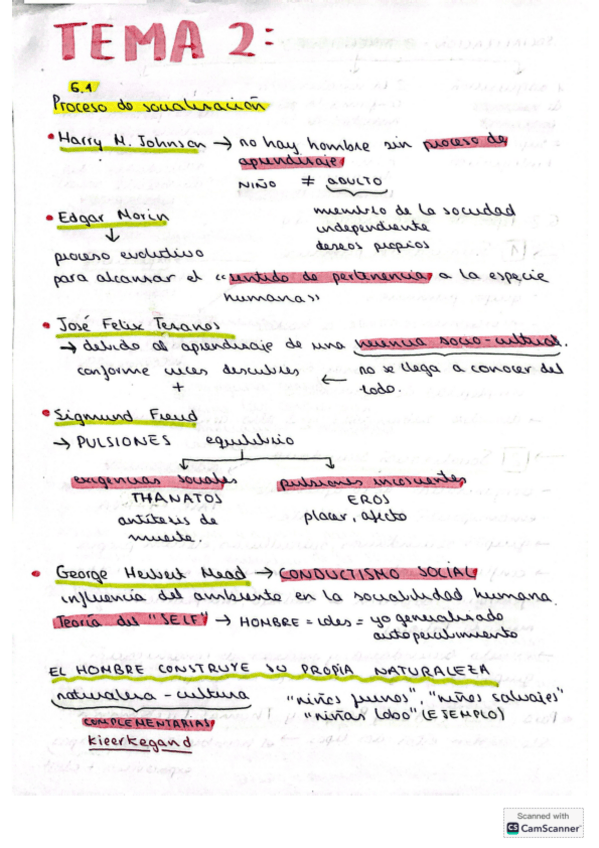 TEMA 2:
6.1
Proceso de socialización
• Harry M. Johnson → no hay hombre sin proceso de
aprendizaje
NIÑO ≠ ADULTO
miembro de la sociedad
independiente
deseos propios
• Edgar Morin
↓
proceso evolutivo
para alcanzar el «sentido de pertenencia» a la especie
humana»
• José Felix Tezanos
→ debido al aprendizaje de una herencia socio-cultural.
conforme creces descubres ← no se llega a conocer del
+ todo.
• Sigmund Freud
→ PULSIONES equilibrio
exigencias sociales pulsiones inconscientes
THANATOS EROS
antítesis de placer, afecto
muerte.
• George Herbert Mead → CONDUCTISMO SOCIAL
influencia del ambiente en la sociabilidad humana.
Teoría del "SELF" → HOMBRE = ideas = yo generalizado
autopercibimiento
EL HOMBRE CONSTRUYE SU PROPIA NATURALEZA
naturaleza - cultura "niños juenos", "niños salvajes"
"niñas lobo" (EJEMPLO)
COMPLEMENTARIAS
kieerkegand
Scanned with
CS CamScanner